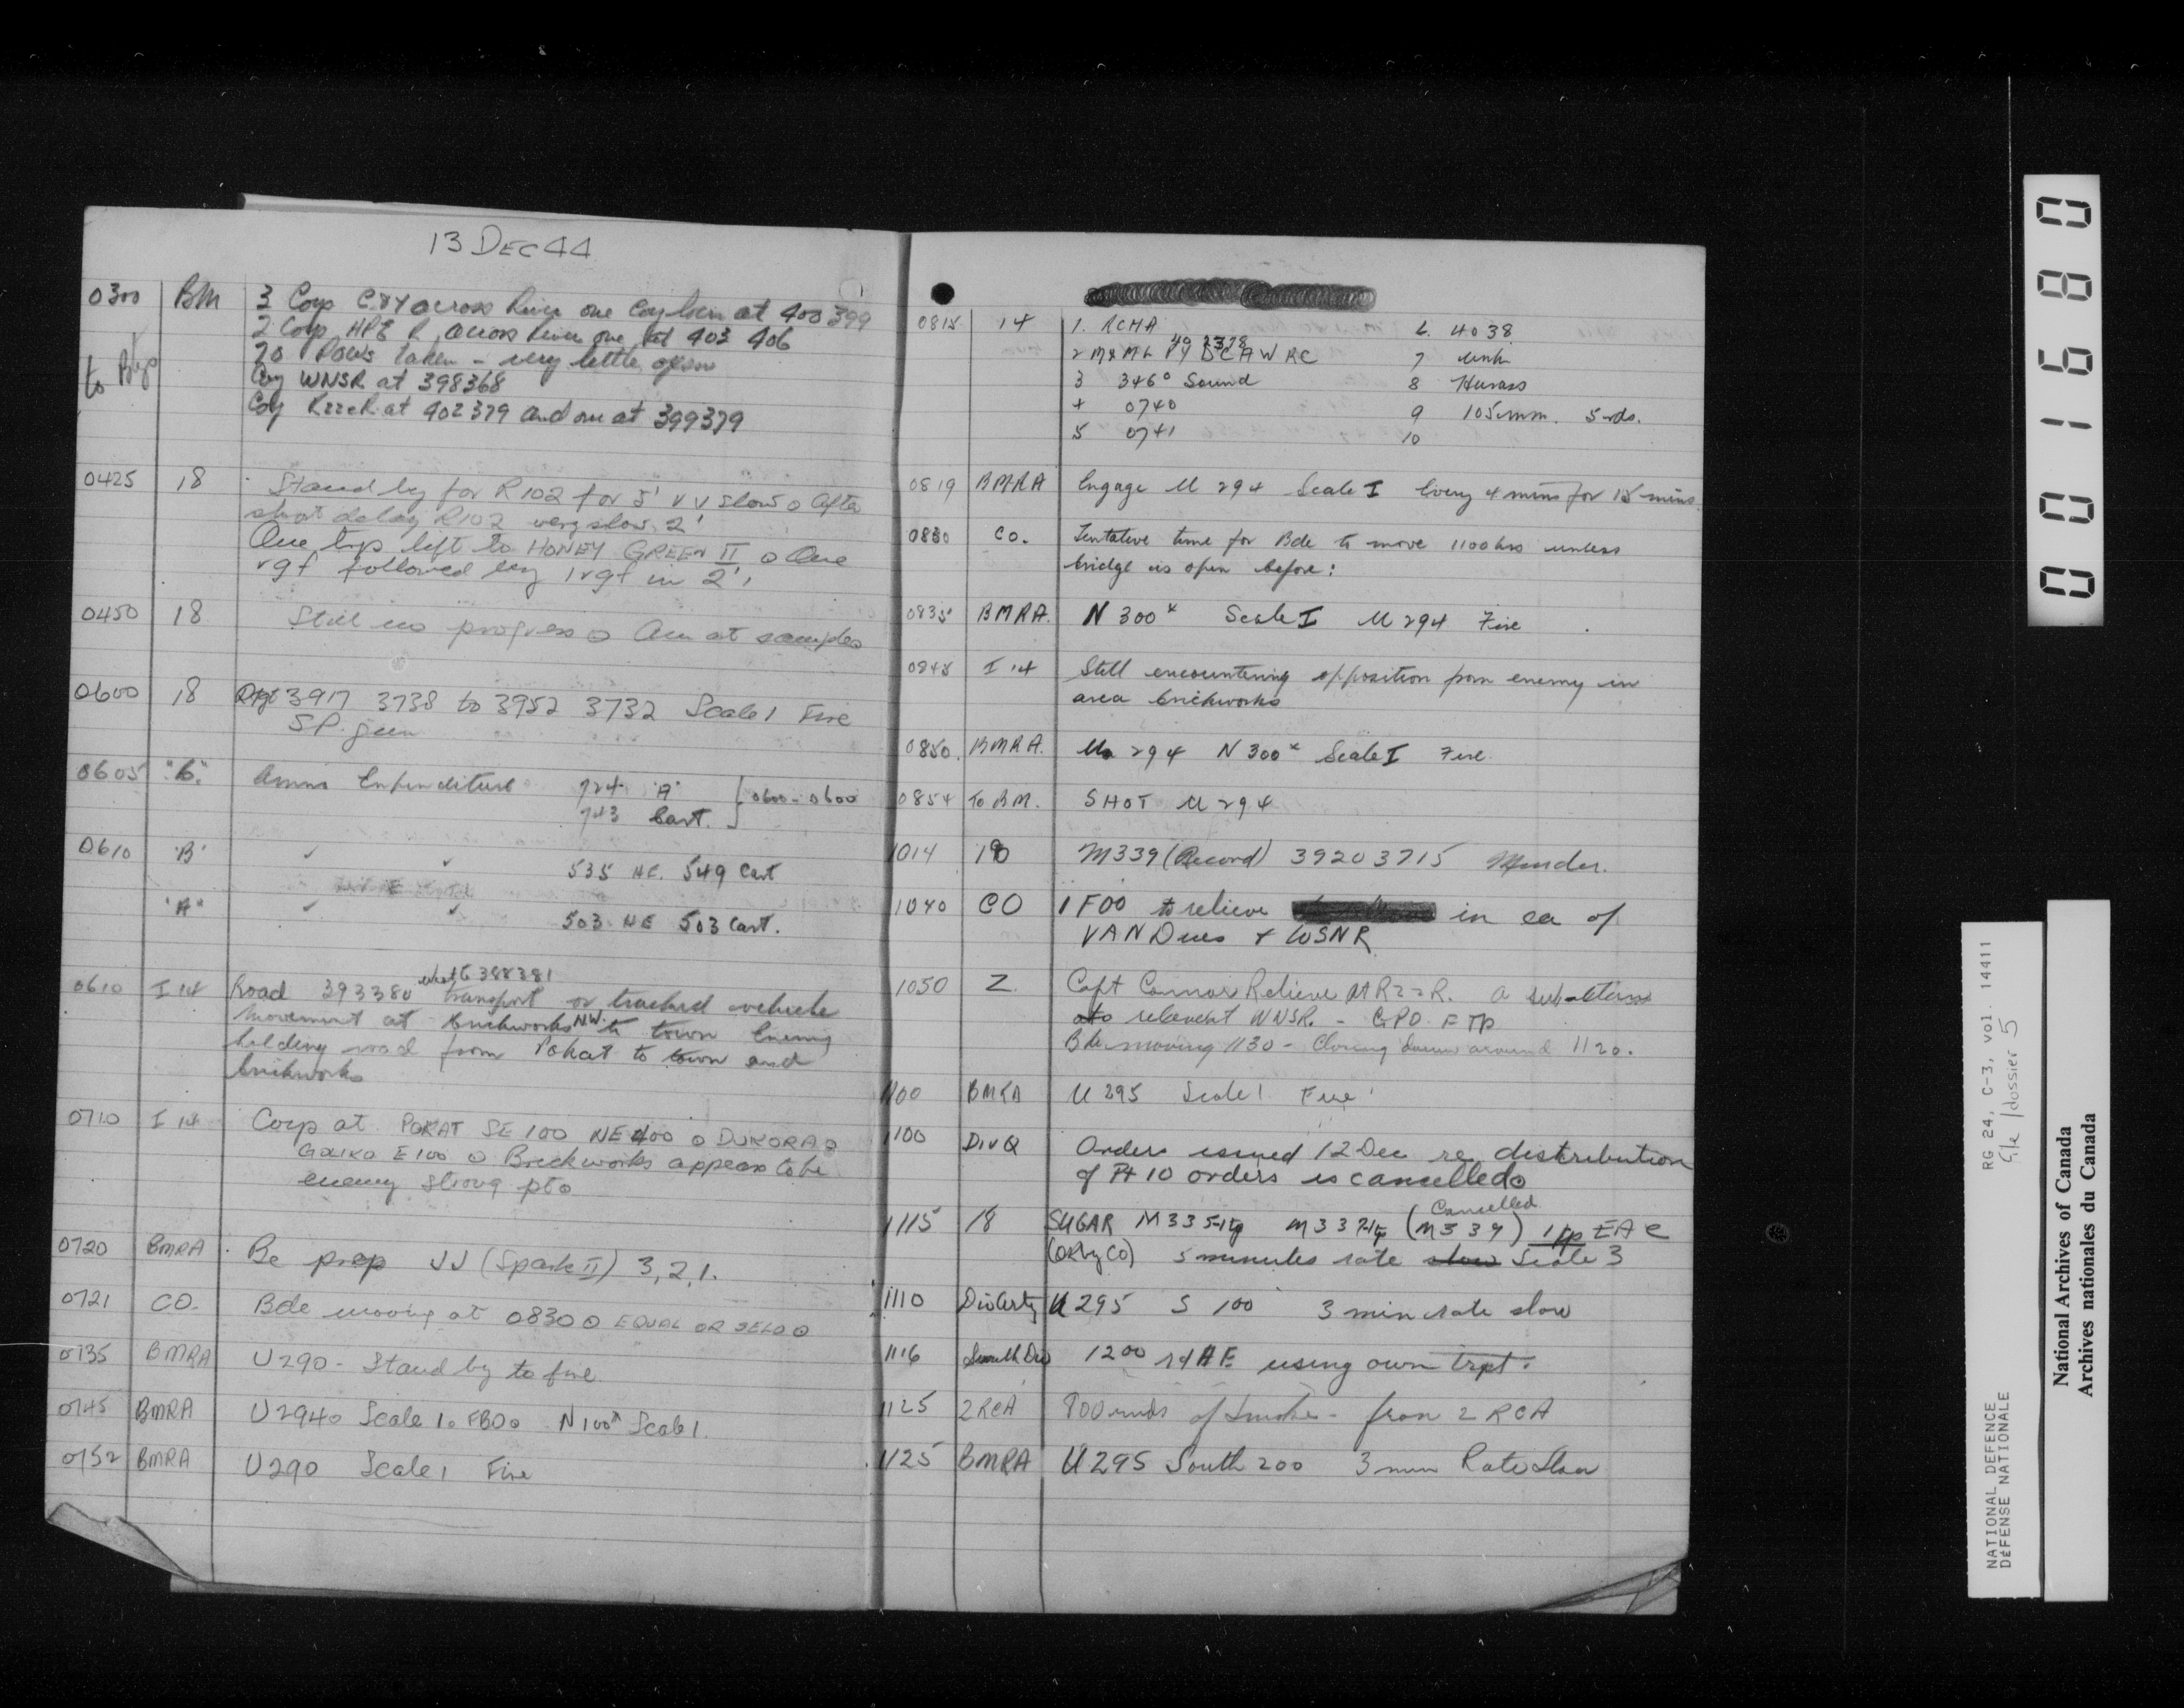 13 DEC 44
0300 BM 3 Coys C&Y across River one Coy loen at 400 399
2 Coys HPE R across River one at 403 406
to Btys 20 POWs taken - very little opsn
Coy WNSR at 398368
Coy RzzeR at 402379 and one at 399379
0425 18 Stand by for R102 for 5' V V slow o After
shoot delay R102 very slow 2'
One trp left to HONEY GREEN II o One
rgt followed by 1 rgt in 2'
0450 18 Still no progress o Am at samples
0600 18 3917 3738 to 3952 3732 Scale 1 Fire
S.P. gun
0605 "C" Ammo Expenditure 724 "A" } 0600 - 0600
743 Cart.
0610 'B' ✓ ✓ 535 HE. 549 Cart
'A" ✓ ✓ 503 HE 503 Cart.
0610 I 14 Road 393380 to 388381 transport or tracked vehicle
movement at brickworks NW. to town Enemy
holding road from Pokat to town and
brickworks
0710 I 14 Coys at POKAT SE 100 NE 400 o DUKORA o
GAIKO E100 o Brickworks appears to be
enemy strong pt o
0720 BMRA Be prep JJ (Spark II) 3, 2, 1.
0721 CO. Bde moving at 0830 o EQUAL OR o
0735 BMRA U290 - Stand by to fire
0745 BMRA U294 o Scale 1 o FBO o N 100x Scale 1.
0752 BMRA U290 Scale 1 Fire
0815 14 1. RCHA 6. 4038
49 2378
2 M & M L PY DCAWRC 7
3 346° Sound 8 Harass
4 0740 9 105 mm. 5 rds.
5 0741 10
0819 BMRA Engage U 294 Scale I Every 4 mins for 15 mins.
0830 CO. Tentative time for Bde to move 1100 hrs unless
bridge is open before:
0835 BMRA. N 300x Scale I U 294 Fire
0845 I 14 Still encountering opposition from enemy in
area brickworks
0850. BMRA. U 294 N 300x Scale I Fire
0854 To BM. SHOT U 294
1014 18 M339 (Record) 3920 3715
1040 CO 1 FOO to relieve in ea of
VAN Dues & WSNR
1050 Z Capt Connor Relieve at RzzR. a subaltern
to relieve at WNSR. - GPO F Trp
Bde moving 1130 - Closing down around 1120.
1100 BMRA U 295 Scale 1 Fire
1100 Div Q Orders issued 12 Dec re distribution
of Pt 10 orders is cancelled o
1115 18 SUGAR M335 M337 (M339) Cancelled
(OK by CO) 5 minutes rate slow Scale 3
1110 Div Arty U 295 S 100 3 min rate slow
1116 1200 rd HE using own trpt.
1125 2 RCA 800 rnds of Smoke - from 2 RCA
1125 BMRA U 295 South 200 3 min Rate Slow
001680
RG 24, C-3, vol. 14411
file/dossier 5
NATIONAL DEFENCE
DÉFENSE NATIONALE
National Archives of Canada
Archives nationales du Canada